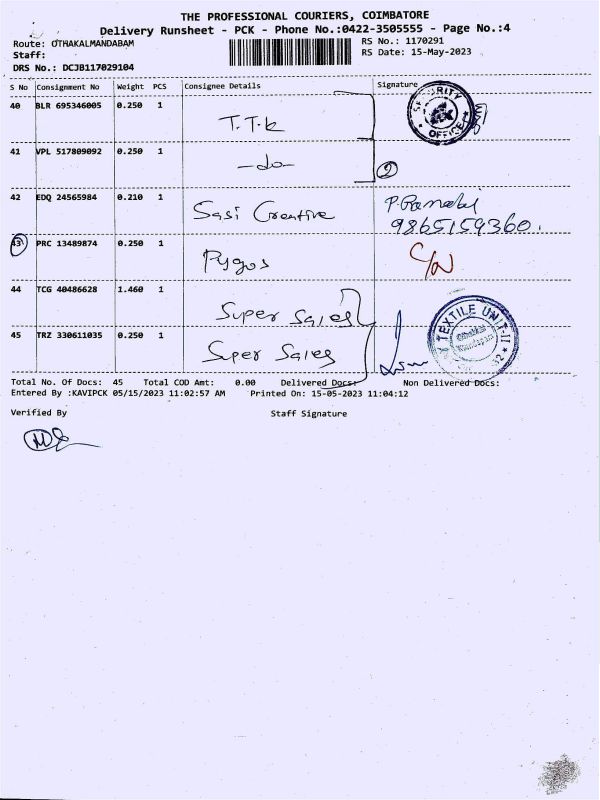 THE PROFESSIONAL COURIERS, COIMBATORE
Delivery Runsheet - PCK - Phone No.:0422-3505555 - Page No.:4
Route: OTHAKALMANDABAM RS No.: 1170291
Staff: RS Date: 15-May-2023
DRS No.: DCJB117029104
S No Consignment No Weight PCS Consignee Details Signature
40 BLR 695346005 0.250 1 T.T.k SECURITY OFFICE
41 VPL 517809092 0.250 1 -do- 2
42 EDQ 24565984 0.210 1 Sasi Creative 9865159360.
43 PRC 13489874 0.250 1 Pygos
44 TCG 40486628 1.460 1 Super Sales
45 TRZ 330611035 0.250 1 Super Sales TEXTILE UNIT-II
Total No. Of Docs: 45 Total COD Amt: 0.00 Delivered Docs: Non Delivered Docs:
Entered By :KAVIPCK 05/15/2023 11:02:57 AM Printed On: 15-05-2023 11:04:12
Verified By Staff Signature